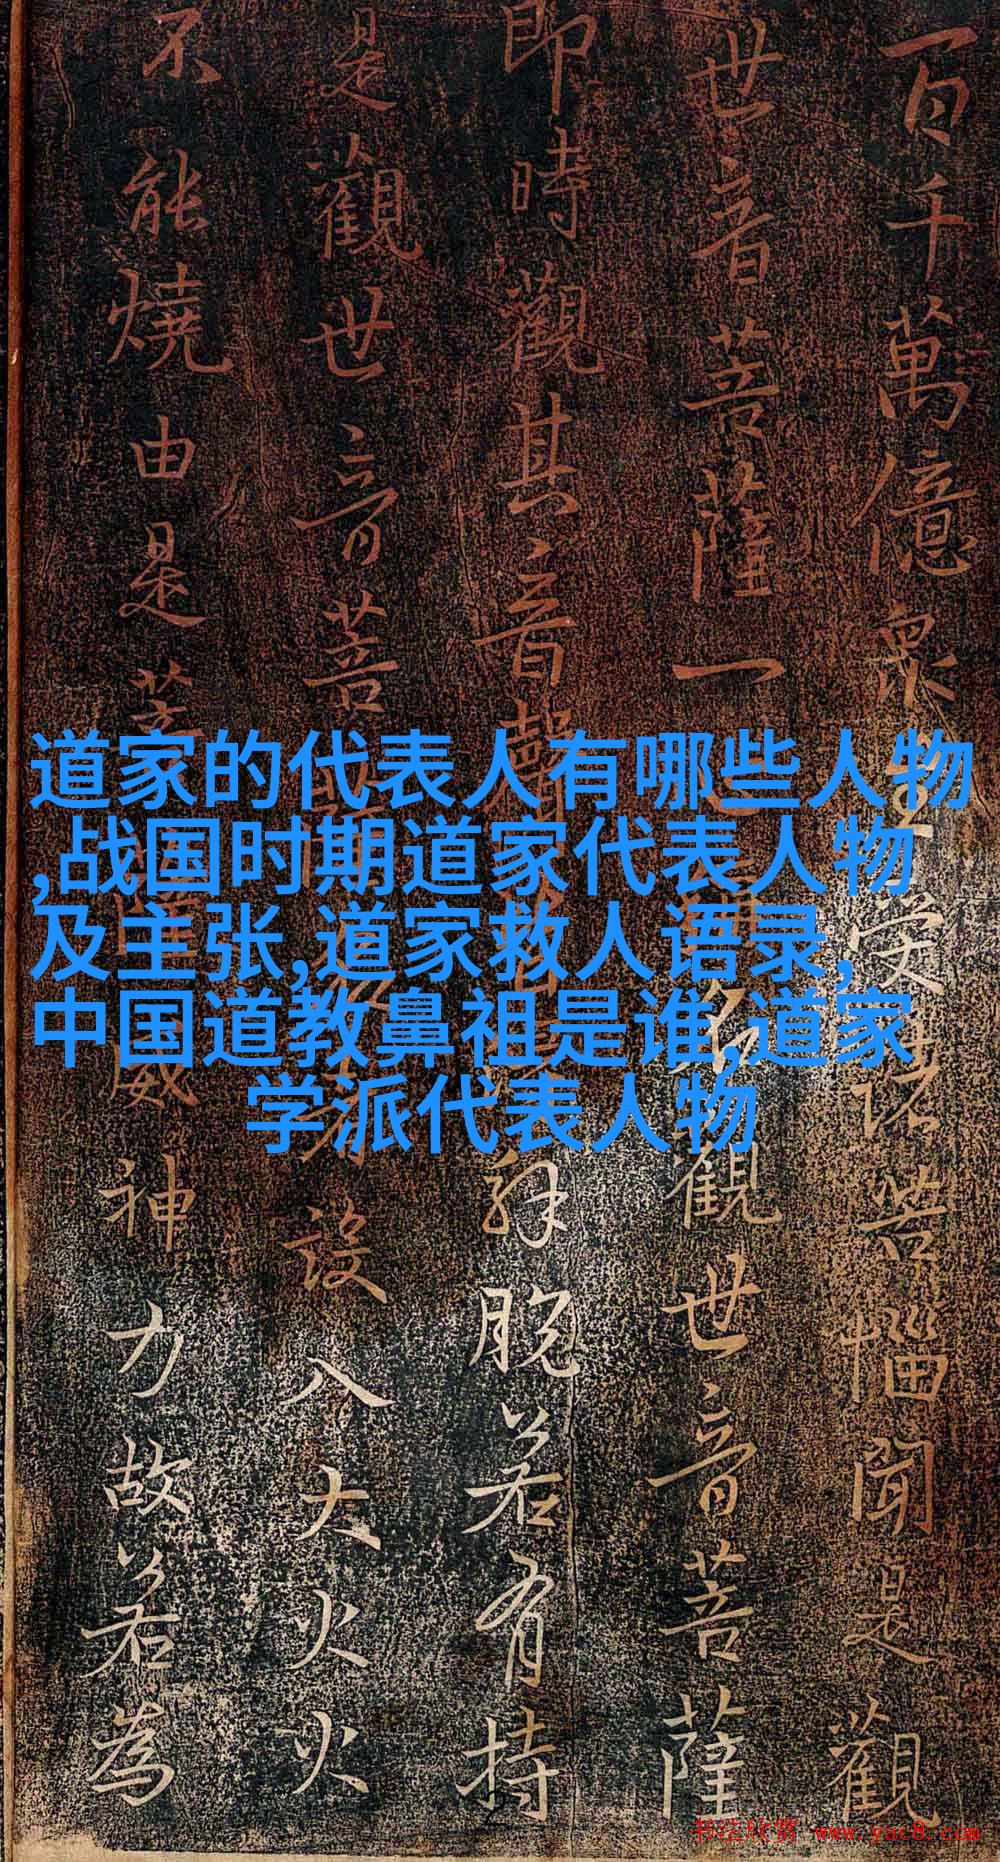 百千萬億眾生受諸苦惱聞是觀
世音菩薩一心稱名觀世音菩薩
即時觀其音聲皆得解脫若有持
是觀世音菩薩名者設入大火火
不能燒由是菩薩威神力故若為
道家的代表人有哪些人物
,战国时期道家代表人物
及主张,道家救人语录,
中国道教鼻祖是谁,道家
学派代表人物
书法欣赏 www.yac8.com